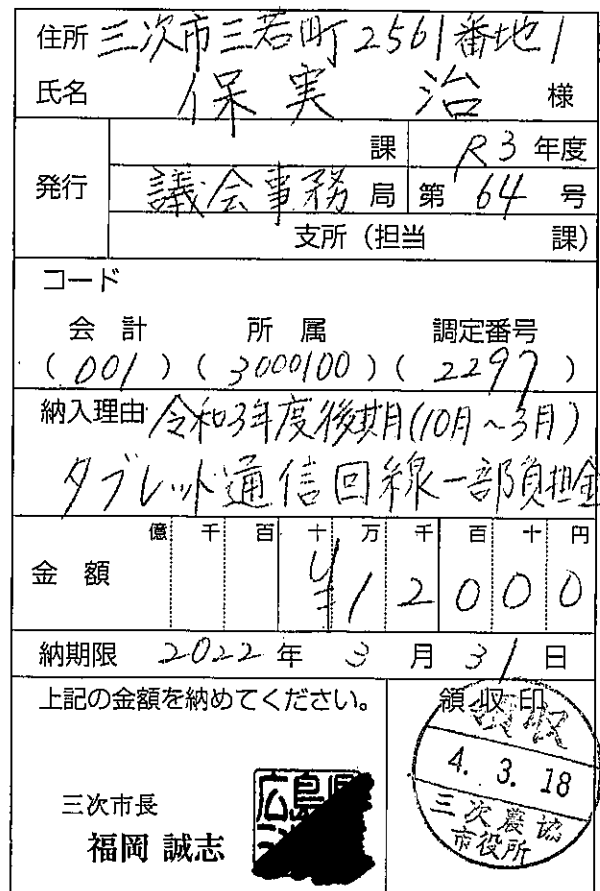 住所 三次市三若町2561番地1
氏名 保実 治 様
課 R3 年度
発行 議会事務 局 第 64 号
支所 (担当 課)
コード
会計 所属 調定番号
(001) (3000100) (2297)
納入理由 令和3年度後期(10月~3月)
タブレット通信回線一部負担金
億 千 百 十 万 千 百 十 円
金額 ¥12000
納期限 2022 年 3 月 31 日
上記の金額を納めてください。
領収印
領収
4. 3. 18
三次農協
市役所
三次市長
福岡 誠志
広島県